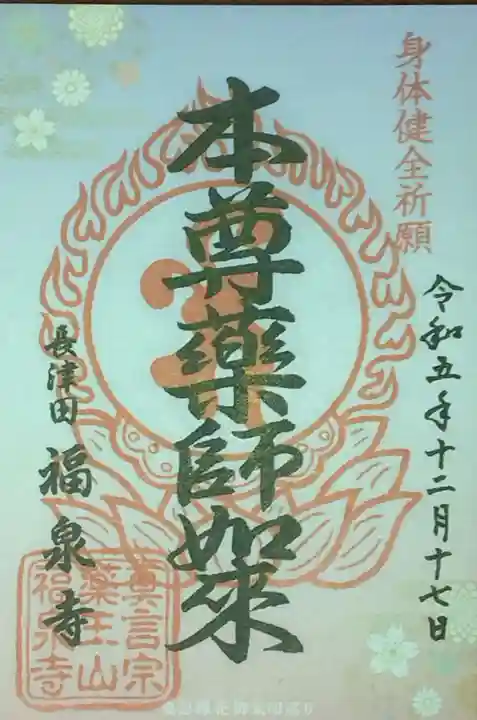 身体健全祈願
令和五年十二月十七日
本尊薬師如来
長津田
福泉寺
真言宗
薬王山
福泉寺